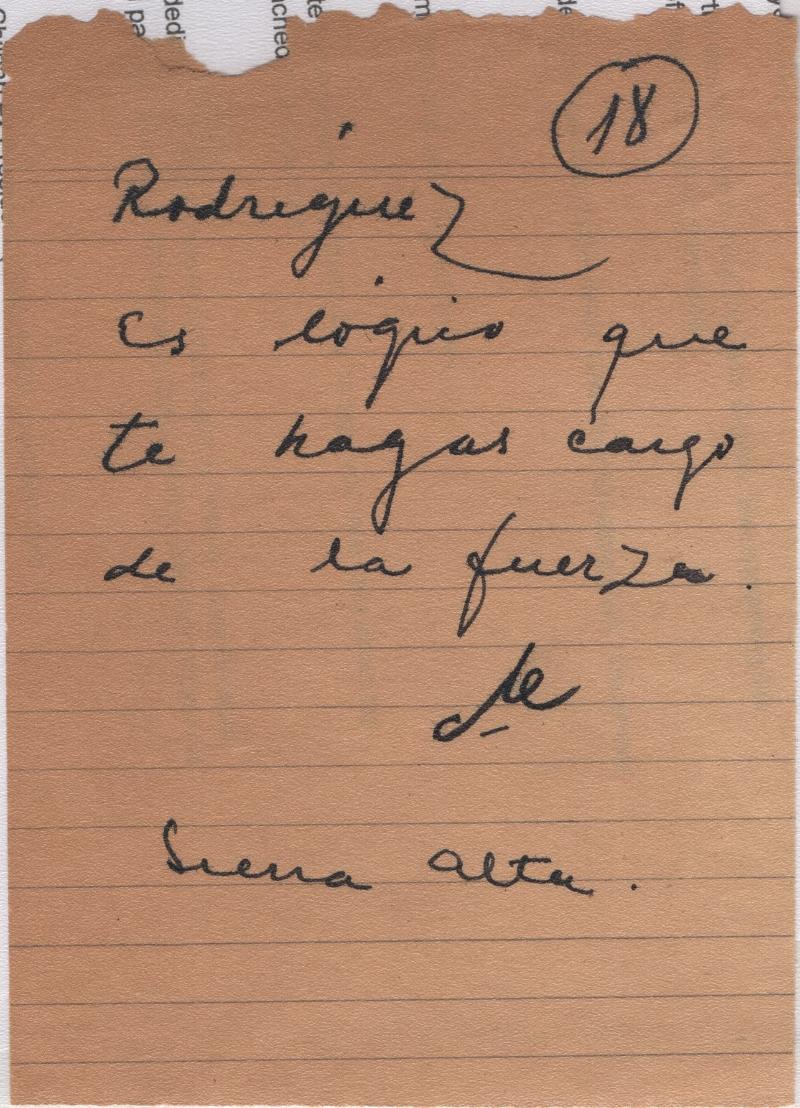 18
Rodríguez
Es lógico que
te hagas cargo
de la fuerza.
Sierra Alta.